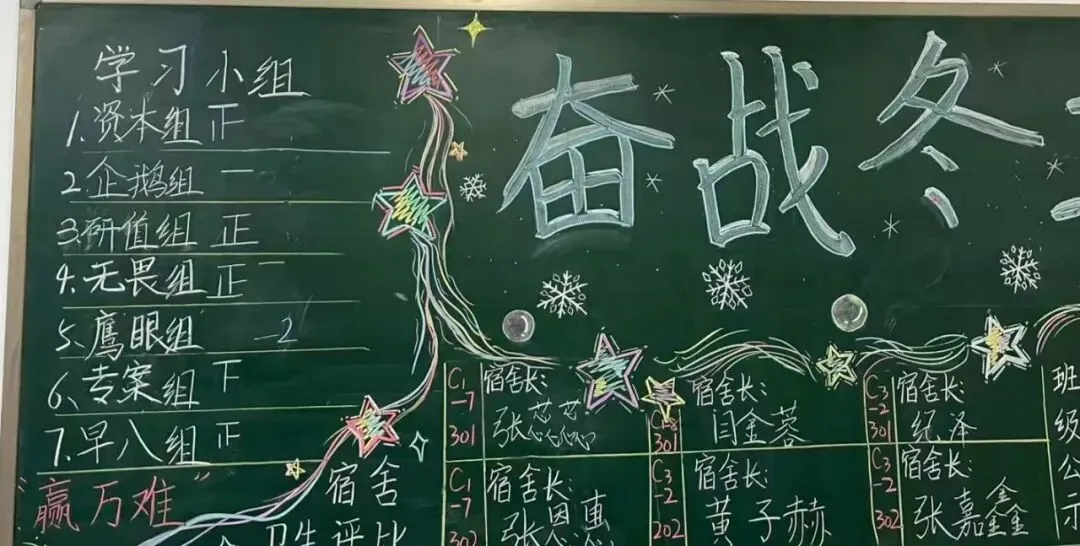 学习小组
1.资本组 正
2.企鹅组 一
3.研值组 正
4.无畏组 正一
5.鹰眼组 -2
6、专案组 下
7.早八组 正
"赢万难"
奋战冬
宿舍
卫生评比
C1
-7
301
宿舍长:
张芯芯
C1-8
301
宿舍长:
闫金蓉
C3
-2
301
宿舍长:
纪泽
班级公示
C1
-7
302
宿舍长:
张恩惠
C3
-2
202
宿舍长:
黄子赫
C3
-2
302
宿舍长:
张嘉鑫